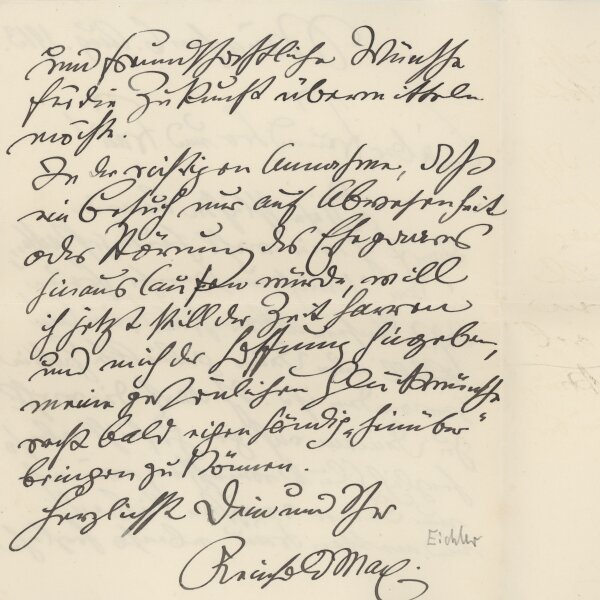 und freundschaftliche Wünsche
für die Zukunft übermitteln
möchte.
In der richtigen Annahme, daß
ein Besuch nur auf Abwesenheit
oder Störung des Ehepaares
hinaus laufen würde, will
ich jetzt still der Zeit harren
und mich der Hoffnung hingeben,
meine persönlichen Glückwünsche
recht bald eigenhändig „hinüber“
bringen zu können.
Herzlichst Dein und Ihr
Eichler
Reinhold Max.